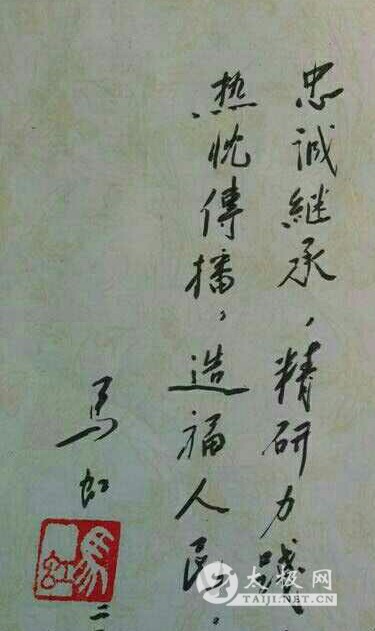 忠诚继承，精研力践
热忱傳播，造福人民。
馬虹
馬虹
二
太极网
TAIJI.NET.CN